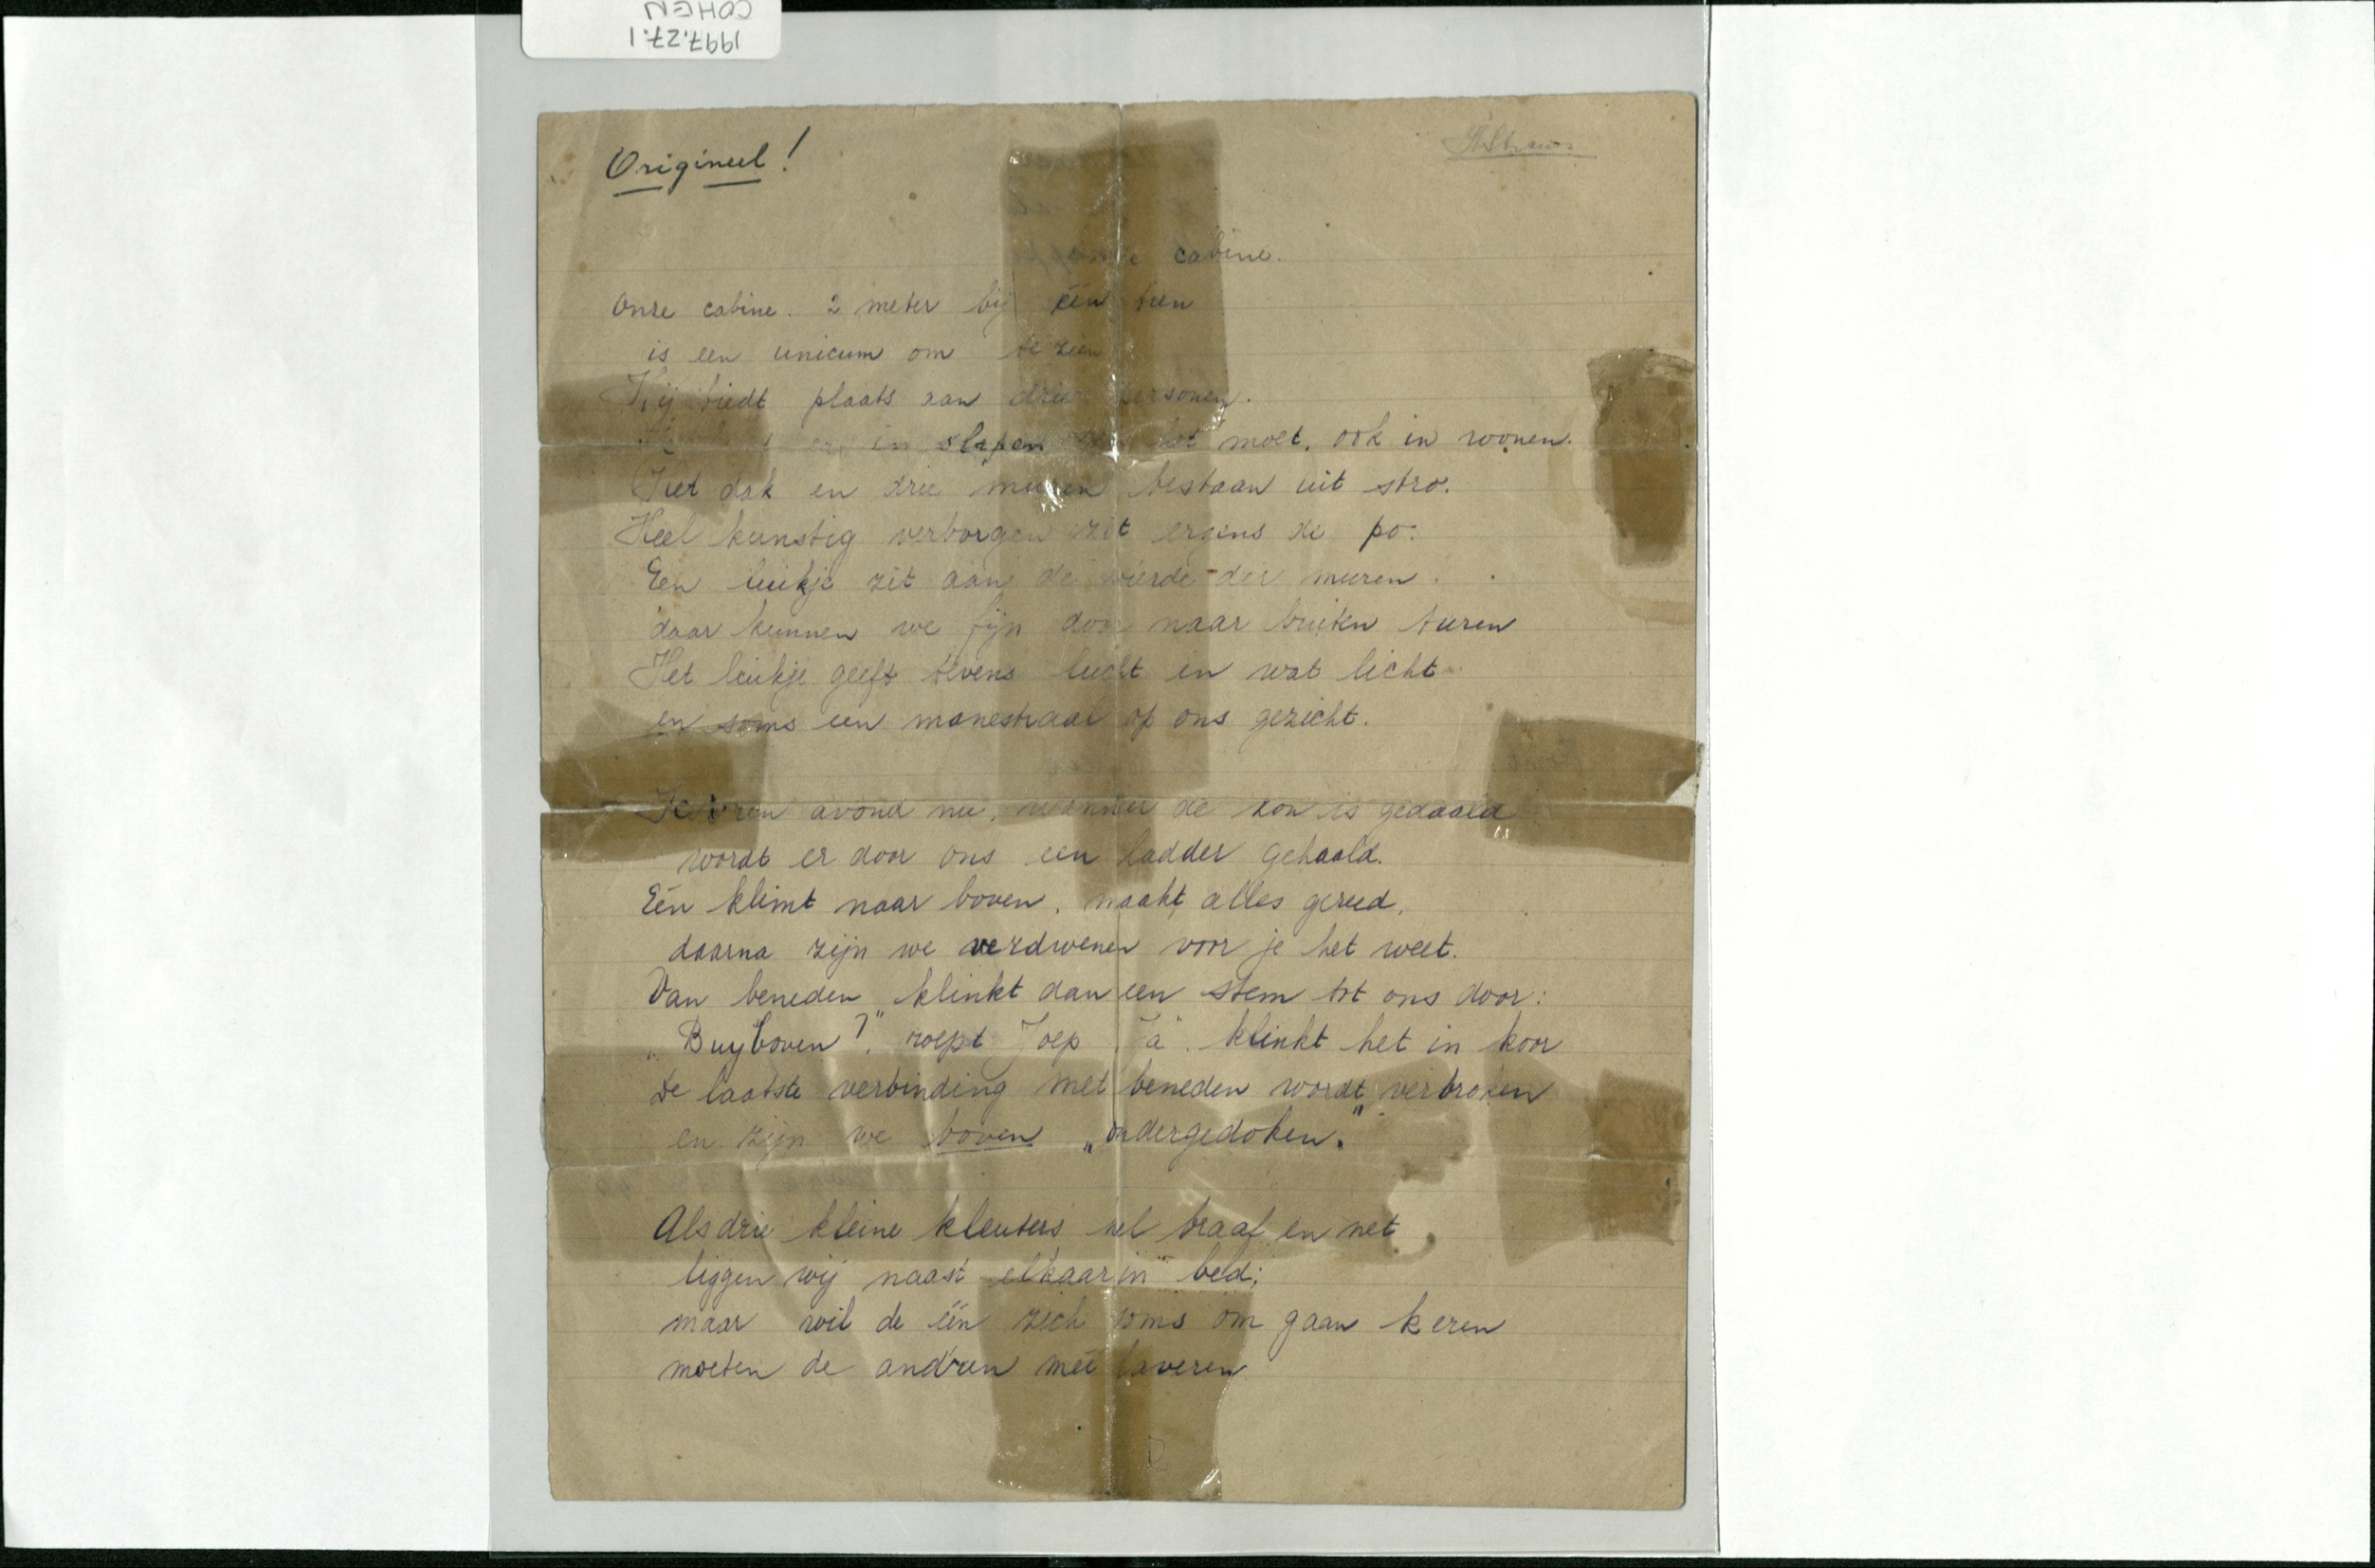 1997.27.1
COHEN
Origineel!
Strauss
cabine.
Onze cabine. 2 meter bij één tien
is een unicum om te zien
Zij biedt plaats aan drie personen.
er in slapen het moet, ook in wonen.
Het dak en drie muren bestaan uit stro.
Heel kunstig verborgen zit ergens de po.
Een luikje zit aan de vierde der muren.
daar kunnen we fijn door naar buiten turen
Het luikje geeft tevens lucht en wat licht
en soms een manestraal op ons gezicht.
Ied'ren avond nu, wanneer de zon is gedaald
wordt er door ons een ladder gehaald.
Eén klimt naar boven, maakt alles gereed,
daarna zijn we verdwenen voor je het weet.
Van beneden klinkt dan een stem tot ons door:
„Buyboven?" roept Joep „Ja". klinkt het in koor
De laatste verbinding met beneden wordt verbroken
en zijn we boven „ondergedoken."
Als drie kleine kleuters heel braaf en net
liggen wij naast elkaar in "bed";
maar wil de één zich soms om gaan keren
moeten de and'ren mee laveren